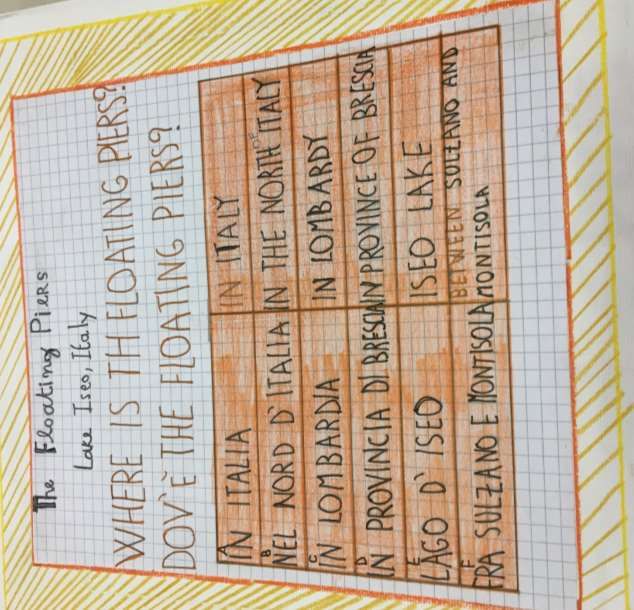 The Floating Piers
Lake Iseo, Italy
WHERE IS TH FLOATING PIERS?
DOV'È THE FLOATING PIERS?
A IN ITALIA IN ITALY
B NEL NORD D'ITALIA IN THE NORTH OF ITALY
C IN LOMBARDIA IN LOMBARDY
D IN PROVINCIA DI BRESCIA IN PROVINCE OF BRESCIA
E LAGO D'ISEO ISEO LAKE
F FRA SULZANO E MONTISOLA BETWEEN SULZANO AND
MONTISOLA